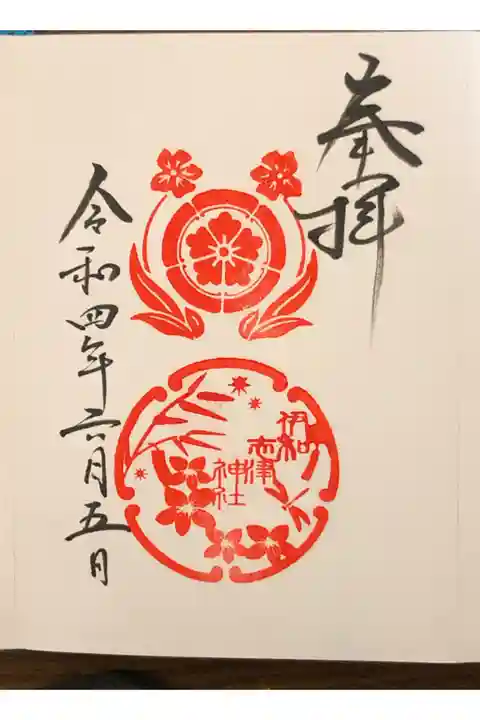 奉拝
伊和
志津
神社
令和四年六月五日